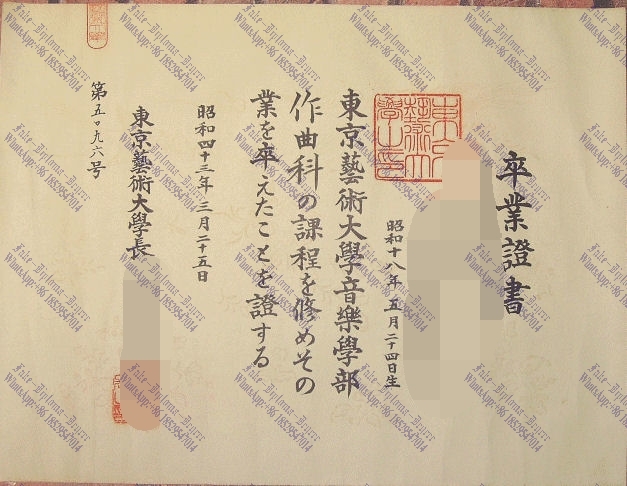 卒業證書
昭和十八年五月二十四日生
東京藝術大學音樂學部
作曲科の課程を修めその
業を卒えたことを證する
昭和四十三年三月二十五日
東京藝術大學長
第五〇九六号
Fake-Diploma
WhatsApp:+86